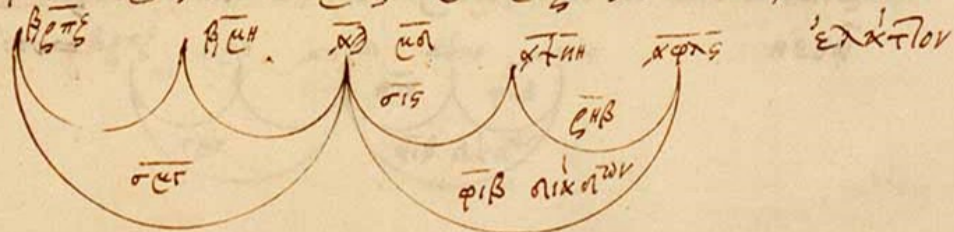 ͵βρπζ ͵βμη ͵αϡμδ ͵αψκη ͵αφλς ἐλάττον
σις
ρϟβ
σμγ φιβ διὰ δτων